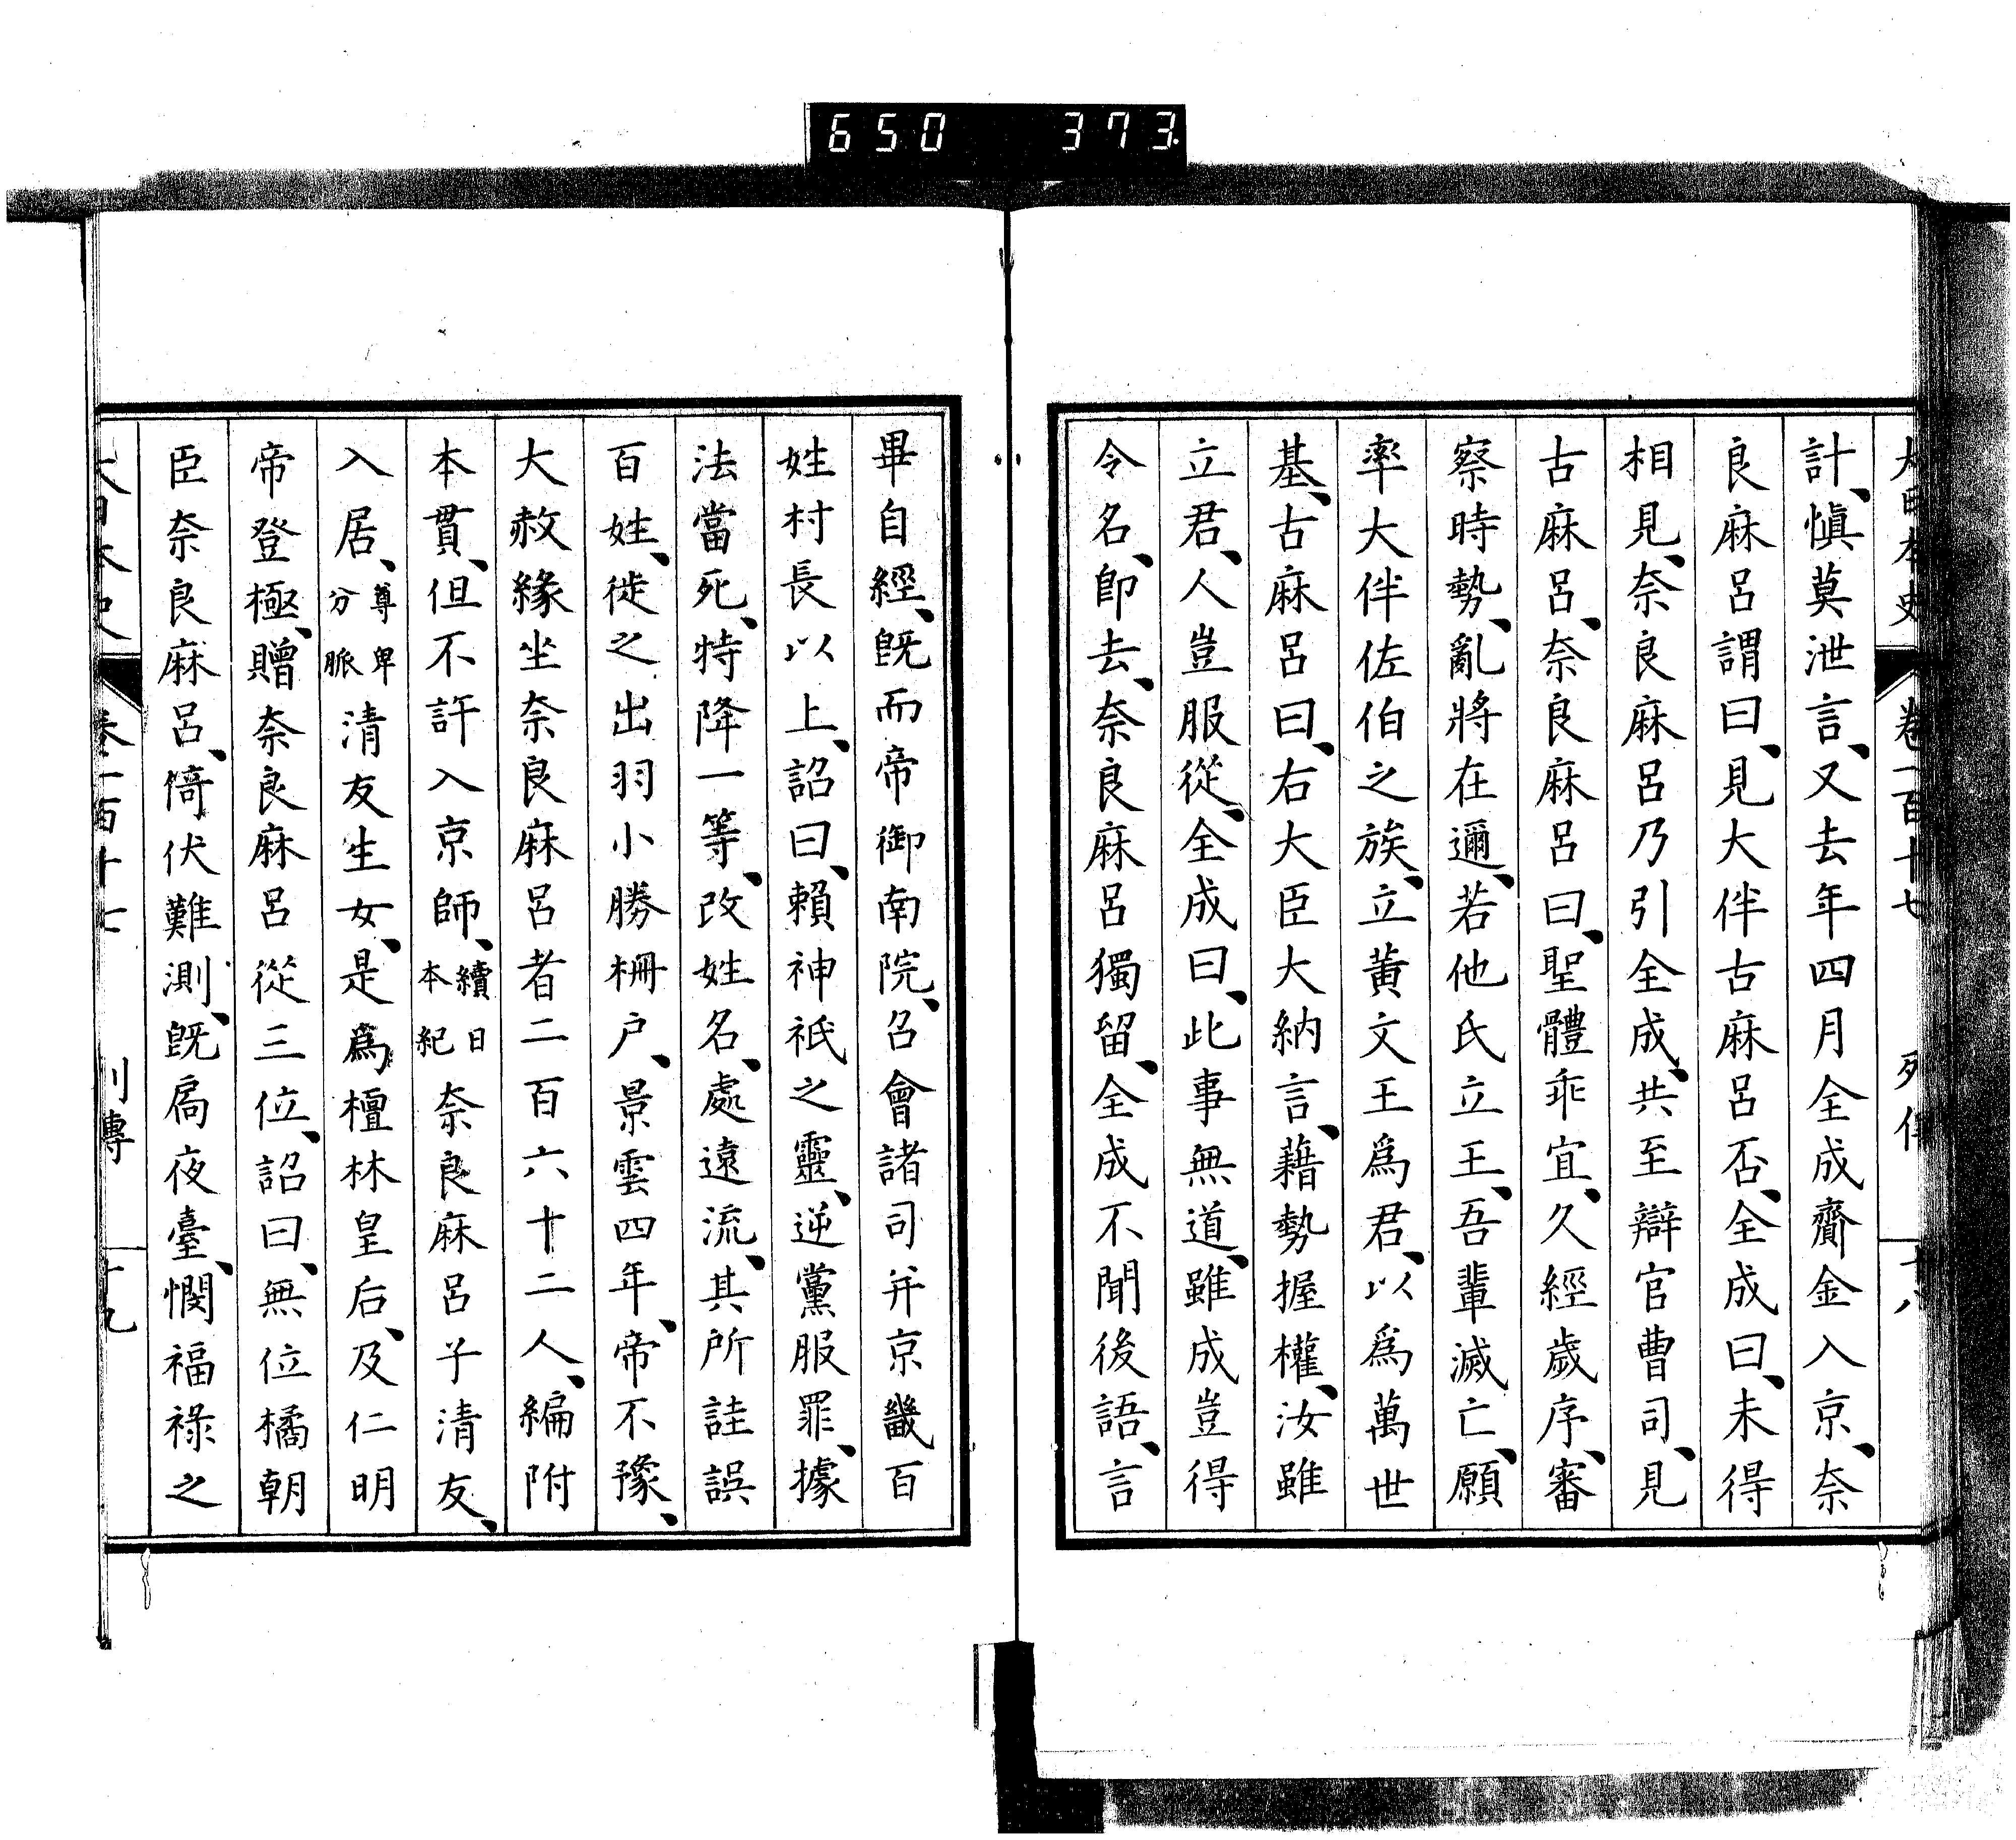 650 373.
大日本史 卷一百十七 列傳 十八
計、愼莫泄言、又去年四月全成齎金入京、奈
良麻呂謂曰、見大伴古麻呂否、全成曰、未得
相見、奈良麻呂乃引全成、共至辯官曹司、見
古麻呂、奈良麻呂曰、聖體乖宜、久經歲序、審
察時勢、亂將在邇、若他氏立王、吾輩滅亡、願
率大伴佐伯之族、立黃文王爲君、以爲萬世
基、古麻呂曰、右大臣大納言、藉勢握權、汝雖
立君、人豈服從、全成曰、此事無道、雖成豈得
令名、卽去、奈良麻呂獨留、全成不聞後語、言
畢自經、旣而帝御南院、召會諸司幷京畿百
姓村長以上、詔曰、賴神祇之靈、逆黨服罪、據
法當死、特降一等、改姓名、處遠流、其所詿誤
百姓、徙之出羽小勝柵戶、景雲四年、帝不豫、
大赦緣坐奈良麻呂者二百六十二人、編附
本貫、但不許入京師、續日本紀奈良麻呂子清友、
入居、尊卑分脈清友生女、是爲檀林皇后、及仁明
帝登極、贈奈良麻呂從三位、詔曰、無位橘朝
臣奈良麻呂、倚伏難測、旣扃夜臺、憫福祿之
大日本史 卷一百十七 列傳 十九